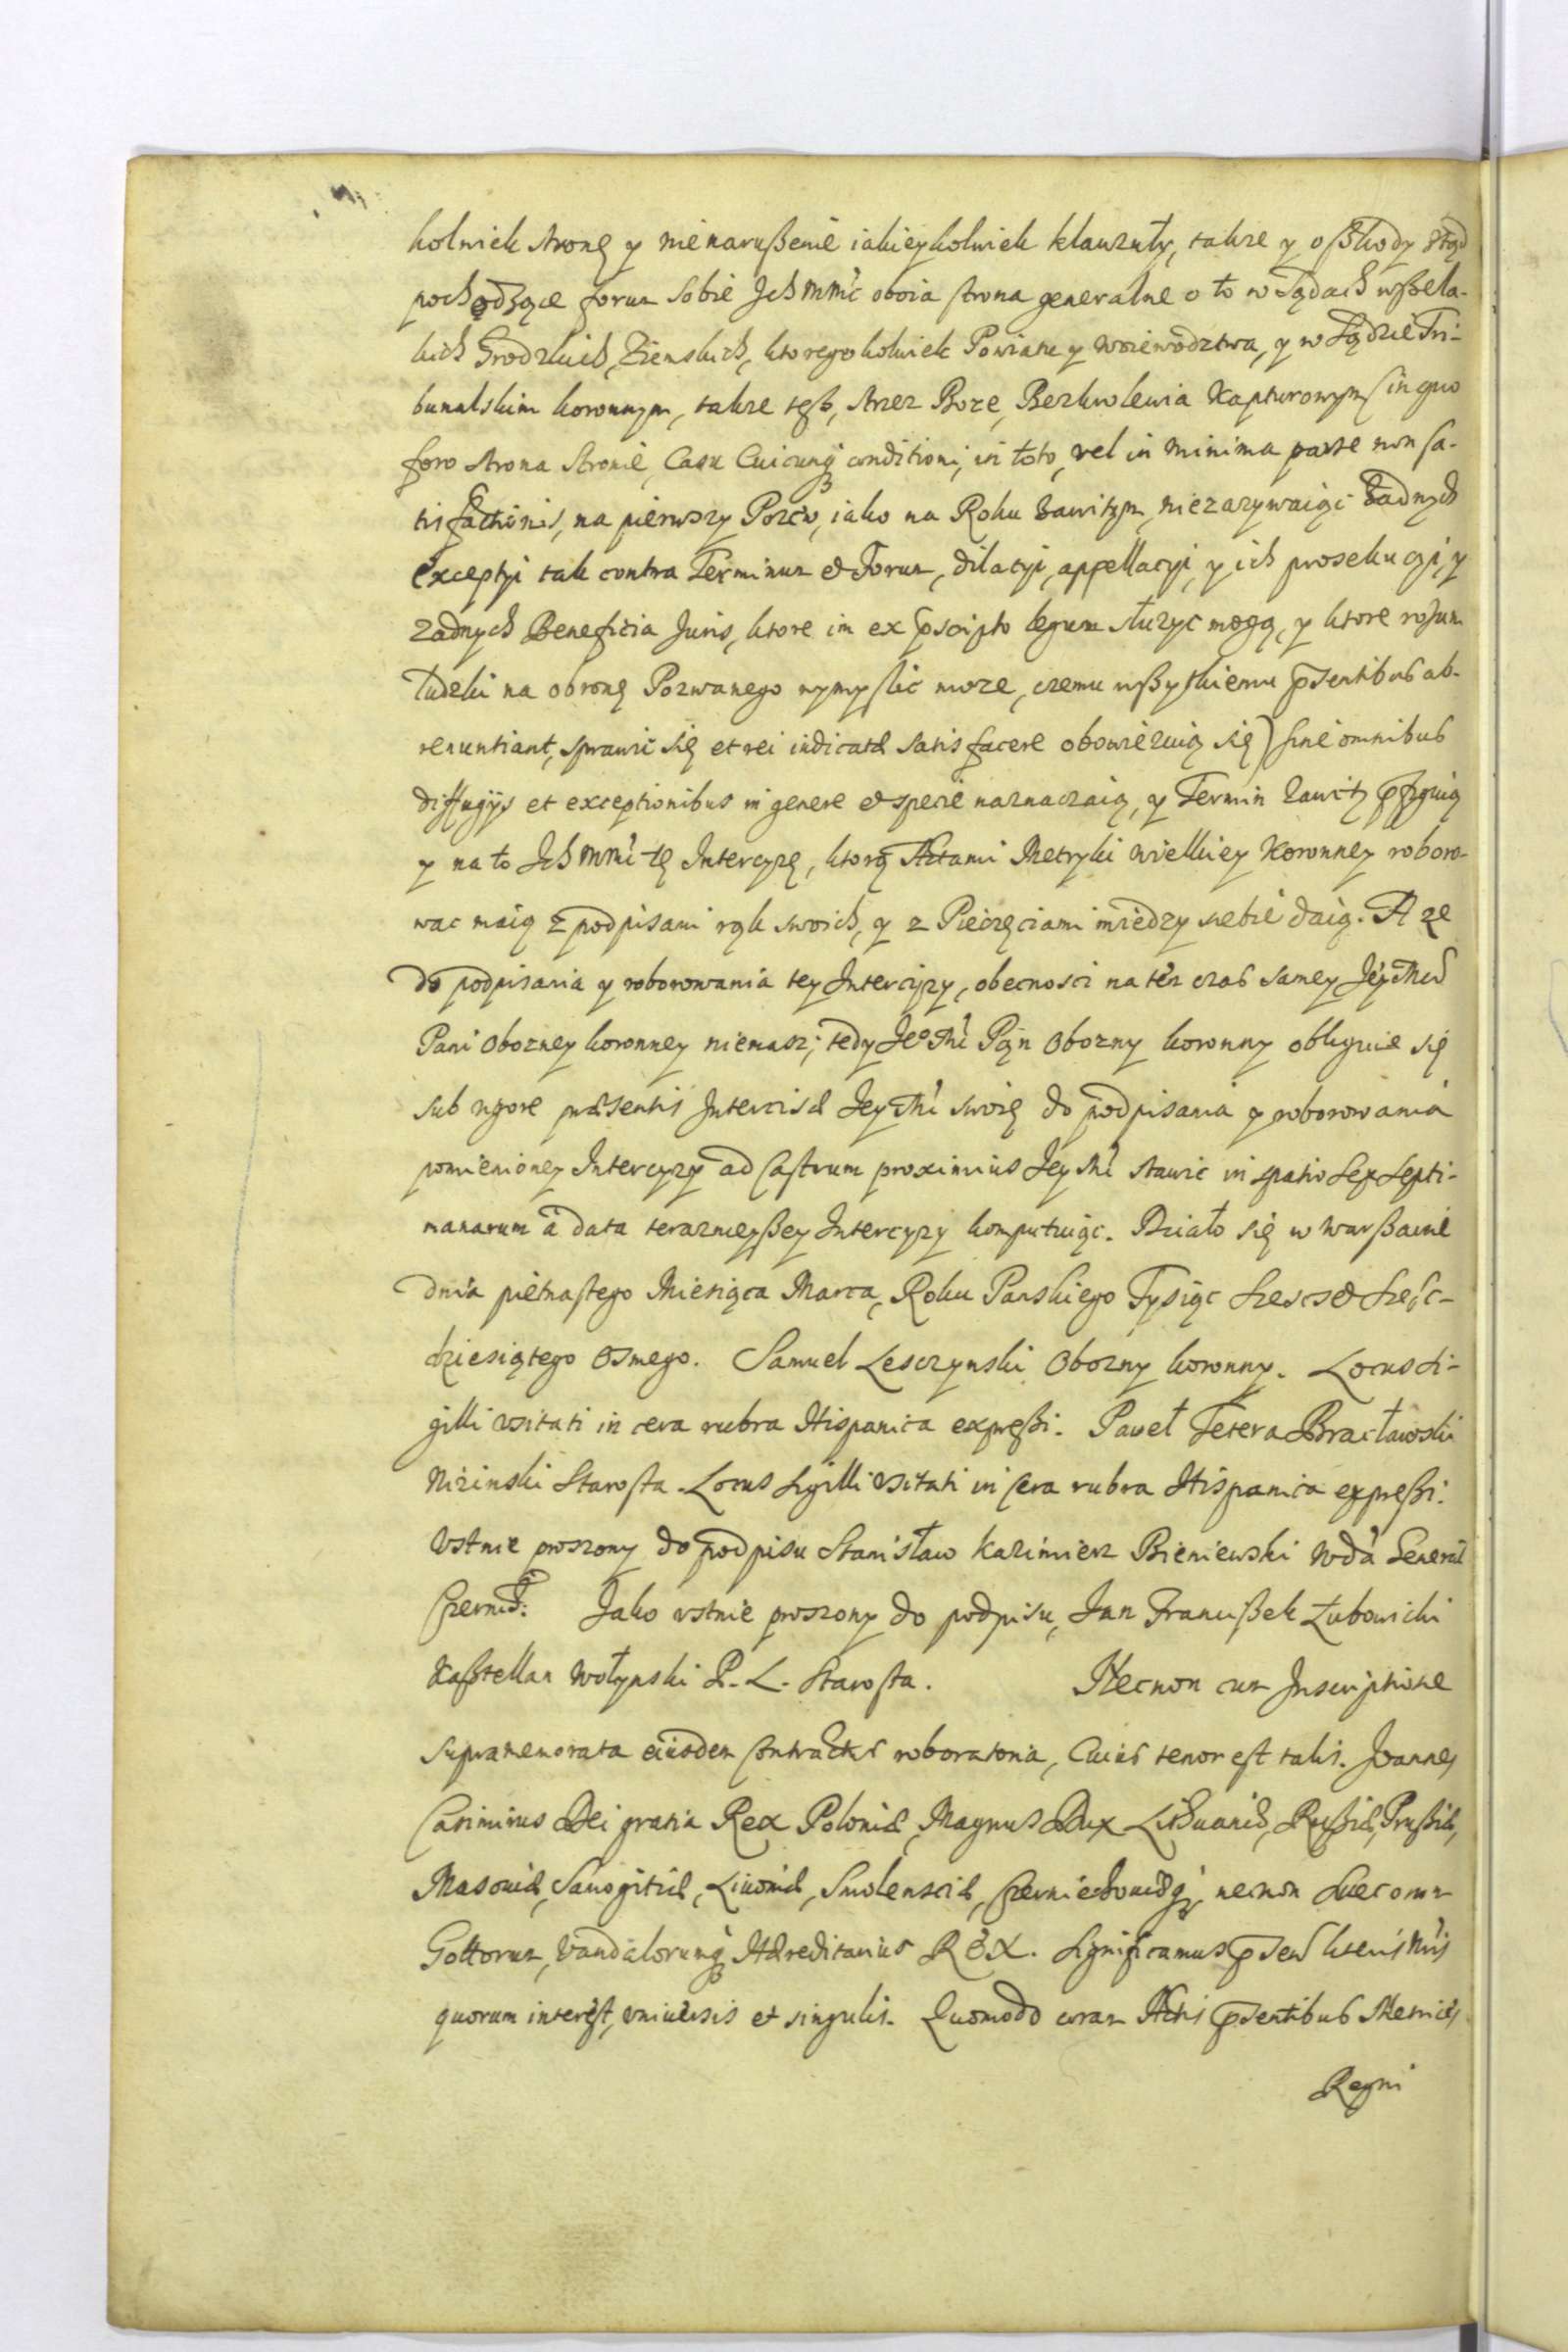 kolwiek stronę y nienarußenie iakieykolwiek klauzuły, takze y o ßkody ztąd
pochodzące forum sobie Ich Mmć oboia strona generalne o to w sądach wßela-
kich Grodzkich, Ziemskich, ktoregokolwiek Powiatu y Woiewodztwa, y w Sądzie Tri-
bunalskim koronnym, takze też, strzez Boze, Bezkrolewia Kapturowym (in quo
foro strona stronie, Casu Cuicunq3 conditioni, in toto, vel in minima parte non sa-
tisfactionis, na pierwszy Pozew, iako na Roku Zawitym, niezazywaiąc zadnych
exceptyi tak contra Terminum et Forum, dilatyi, appellacyi, y ich prosekucyi, y
zadnych Beneficia Juris, ktore im ex pscripto legum słuzyc mogą, y ktore rozum
ludzki na obronę Pozwanego wymyslic moze, czemu wßyskiemu psentibus ab-
renuntiant, sprawic się et rei iudicatæ satisfacere obowiezuią się) sine omnibus
diffugijs et exceptionibus in genere et specie naznaczaią, y Termin Zawity pfiguią
y na to Ich Mmć tę Intercyzę, ktorą Aktami Metryki Wielkiey Koronney roboro-
wac maią z podpisami rąk swoich, y z Pieczęciami miedzy siebie daią. A ze
do podpisania y roborowania tey Intercyzy, obecnosci na ten czas samey Jey Mci
Pani Obozney koronney niemasz; tedy Jeo Mć Pan Obozny koronny obliguie się
sub rigore præsentis Intercisæ Jey Mć swoię do podpisania y roborowania
pomienioney Intercyzy ad Castrum proximius Jey Mć stawic in spatio Sex Septi-
manarum à data teraznieyßey Intercyzy komputuiąc. Działo się w Warßawie
dnia pietnastego Miesiąca Marca, Roku Panskiego Tysiąc Szescset Szesc-
dziesiątego Osmego. Samuel Lesczynski Obozny koronny. Locus Si-
gilli vsitati in cera rubra Hispanica expreßi. Paweł Tetera Bracławski
Nizinski Starosta. Locus Sigilli vsitati in Cera rubra Hispanica expreßi.
Vstnie proszony do podpisu Stanisław Kazimierz Bieniewski Wda General
Czernich: Jako vstnie proszony do podpisu, Jan Francißek Lubowicki
Kaßtellan Wołynski P. L. Starosta. Necnon cum Inscriptione
supramemorata eiusdem Contractus roboratoria, Cuius tenor est talis. Joannes
Casimirus Dei gratia Rex Poloniæ, Magnus Dux Lithuaniæ, Rußiæ, Prußiæ,
Masoviæ, Samogitiæ, Livoniæ, Smolensciæ, Czerniechoviæq3, necnon Suecorum
Gottorum, Vandalorumq3 Hæreditarius REX. Significamus psen literis Nris
quorum interest, vniuersis et singulis. Quomodo coram Actis psentibus Metrices
Regni